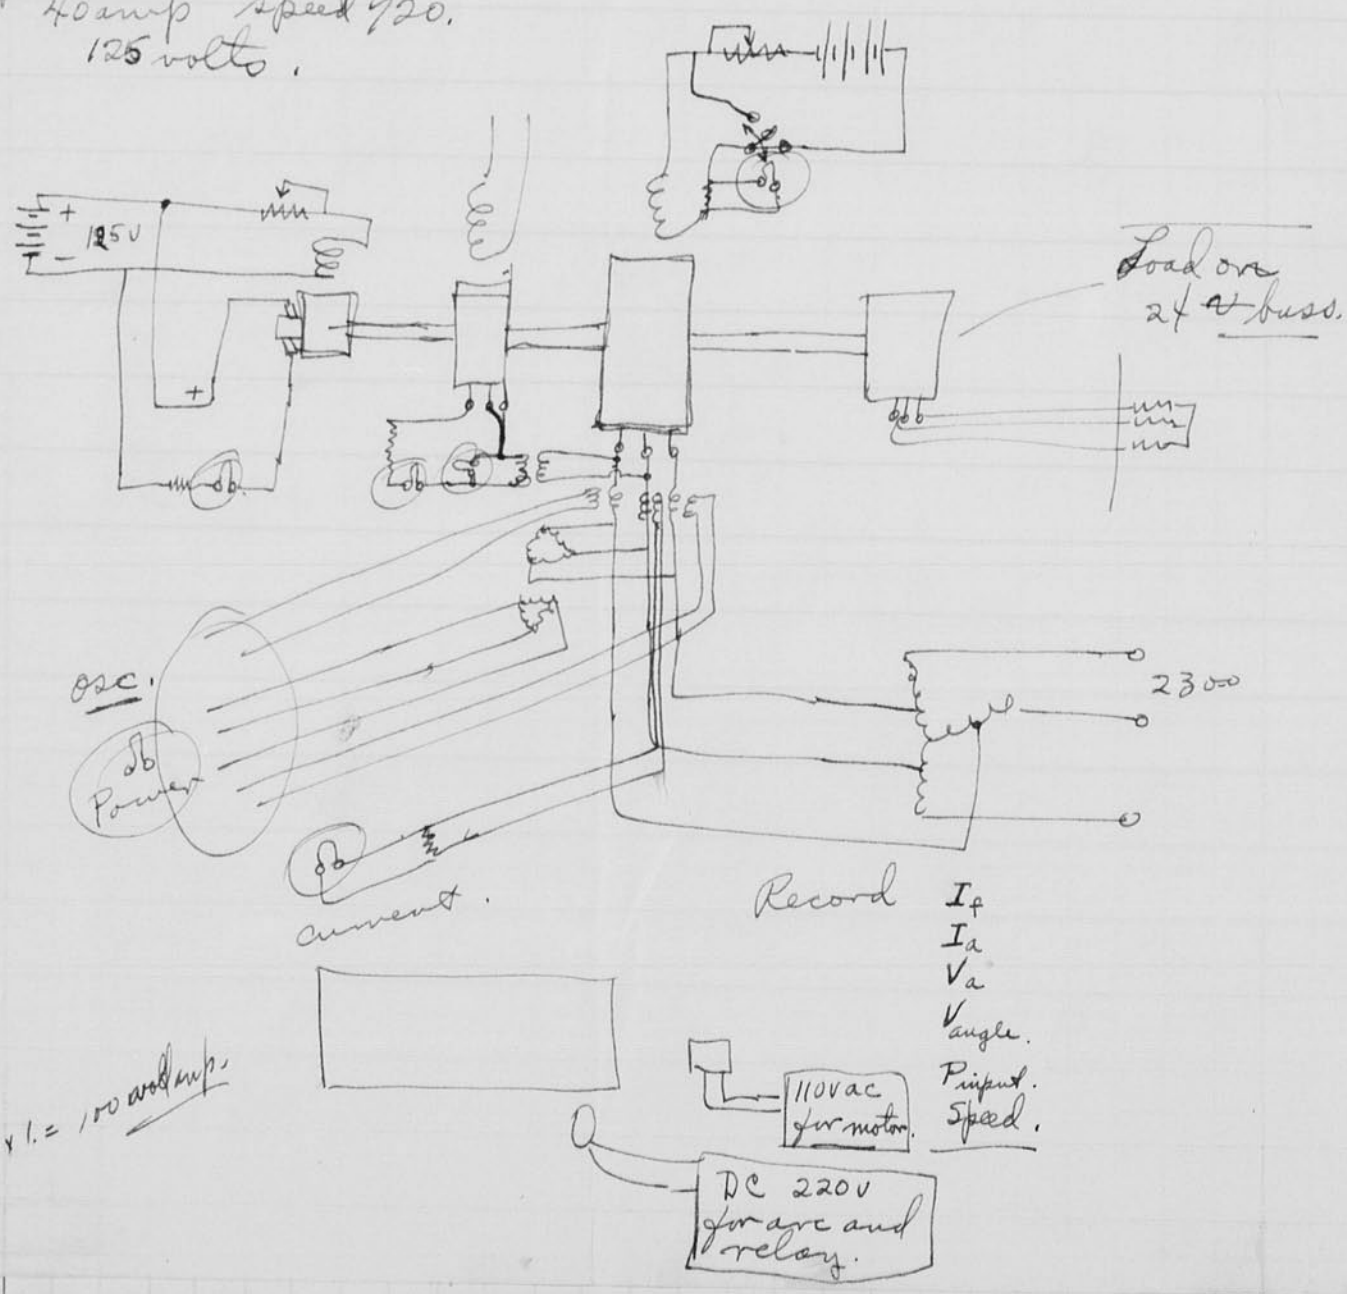 40 amp speed 720.
125 volts.
+
125V
-
+
Load on
24 V buss.
osc.
Power
2300
current.
Record
I f
I a
V a
V angle.
P input.
Speed.
110V ac
for motor.
DC 220V
for arc and
relay.